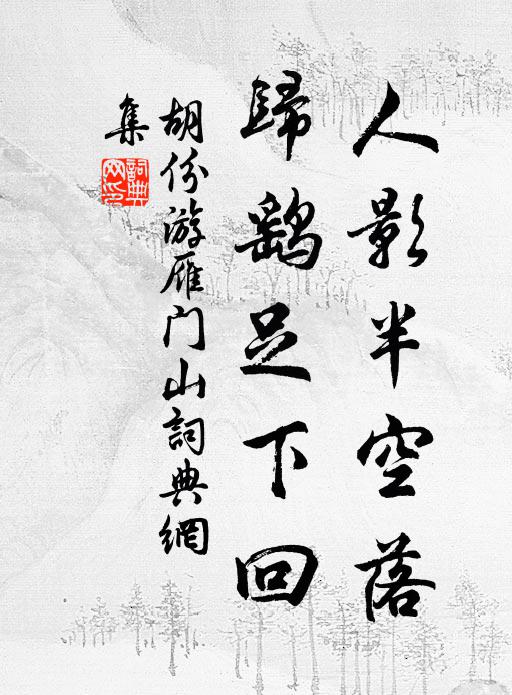 人影半空落
歸鷂足下回
胡份游雁门山詞典網
集
詞典網印